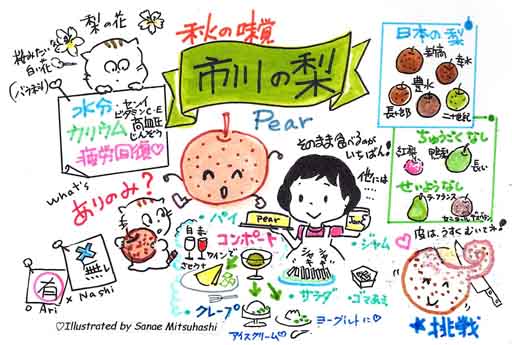 梨の花
桜みたいな
白い花
(バラ科)
秋の味覚
市川の梨
Pear
水分
カリウム
疲労回復♡
セン
ビタミンC・E
高血圧
じんぞう
日本の梨
幸水
豊水
長十郎
二十世紀
ちゅうごくなし
紅梨
鴨梨
せいようなし
ラ・フランス
そのまま食べるのが
いちばん!
他には…
what's
ありのみ?
× 無
× Nashi
有
○ Ari
・パイ
・コンポート
赤 白
ワインで
pear
Jam
・ジャム
シャキ
シャキ
・サラダ
・ゴマあえ
・クレープ
アイスクリーム
ヨーグルトに♡
♡皮は、うすくむいてネ!
★挑戦
♡Illustrated by Sanae Mitsuhashi